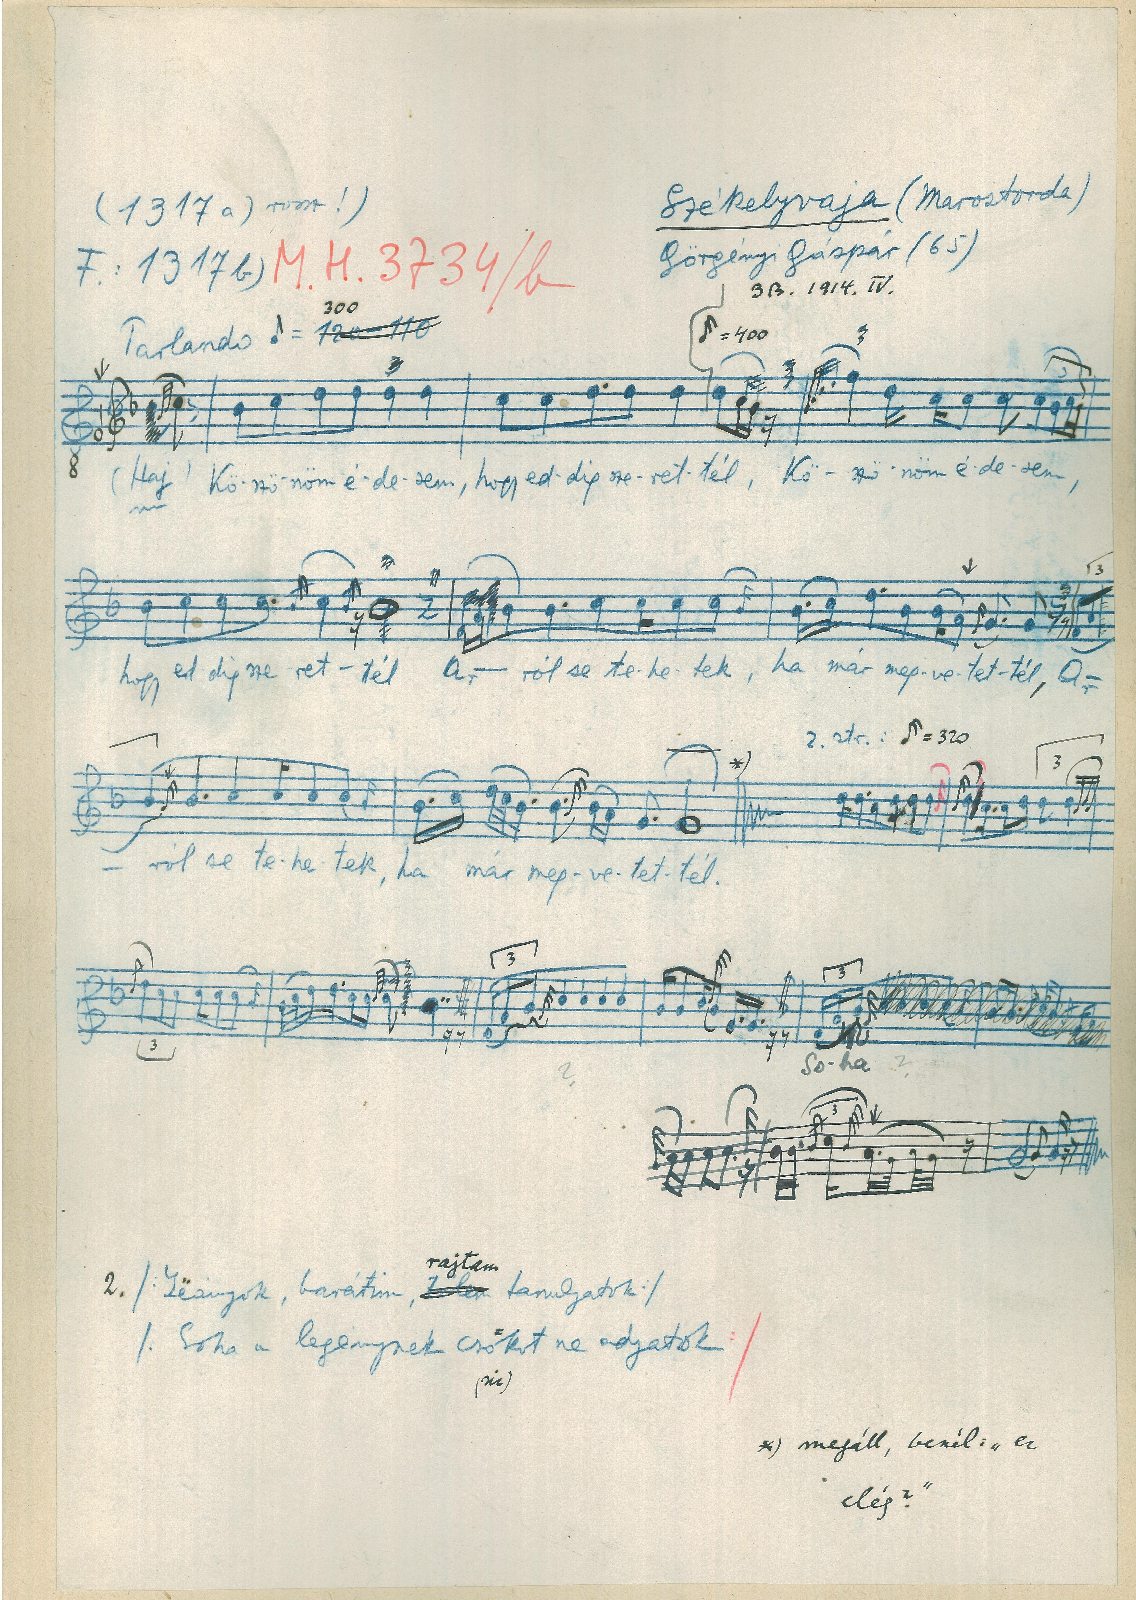 (1317a) rossz!)
Székelyvaja (Marostorda)
F.: 1317b) M.H. 3734/b
Görgényi Gáspár (65)
BB. 1914. IV.
300
Parlando ♪ = 120-110
♪ = 400
3
3
8
(Haj) Kö-szö-nöm é-de-sem, hogy ed-dig sze-ret-tél, Kö-szö-nöm é-de-sem,
3
hogy ed dig sze-ret-tél A-ról se te-he-tek, ha már meg-ve-tet-tél, A-
2. str.: ♪ = 320
*)
3
- ról se te-he-tek, ha már meg-ve-tet-tél.
3
3
3
?
So-ha ?
3
rajtam
2. /: Lëányok, barátim, tanuljatok :/
/: Soha a legénynek csókot ne adjatok :/
(sic)
*) megáll, beszél: „ez
elég?"